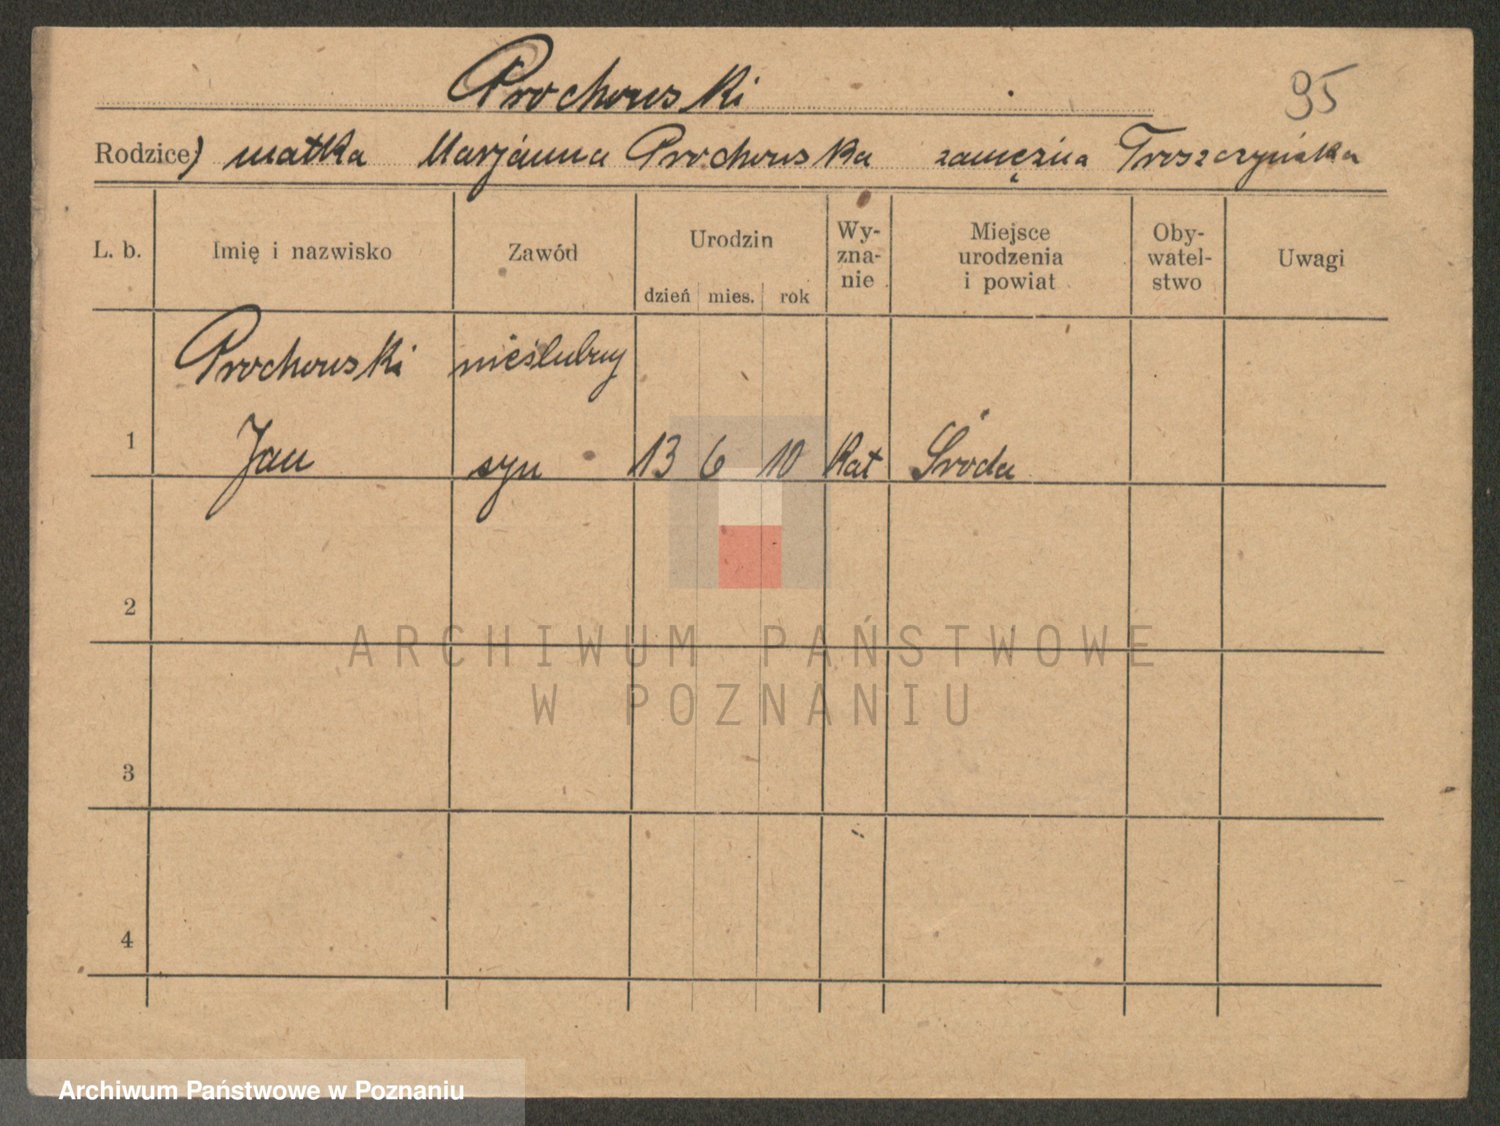 Prochowski
95
Rodzice) matka Marjanna Prochowska zamężna Troszczyńska
L. b. Imię i nazwisko Zawód Urodzin dzień mies. rok Wy-zna-nie Miejsce urodzenia i powiat Oby-watel-stwo Uwagi
Prochowski nieślubny
1 Jan syn 13 6 10 Kat Środa
2
ARCHIWUM PAŃSTWOWE
W POZNANIU
3
4
Archiwum Państwowe w Poznaniu